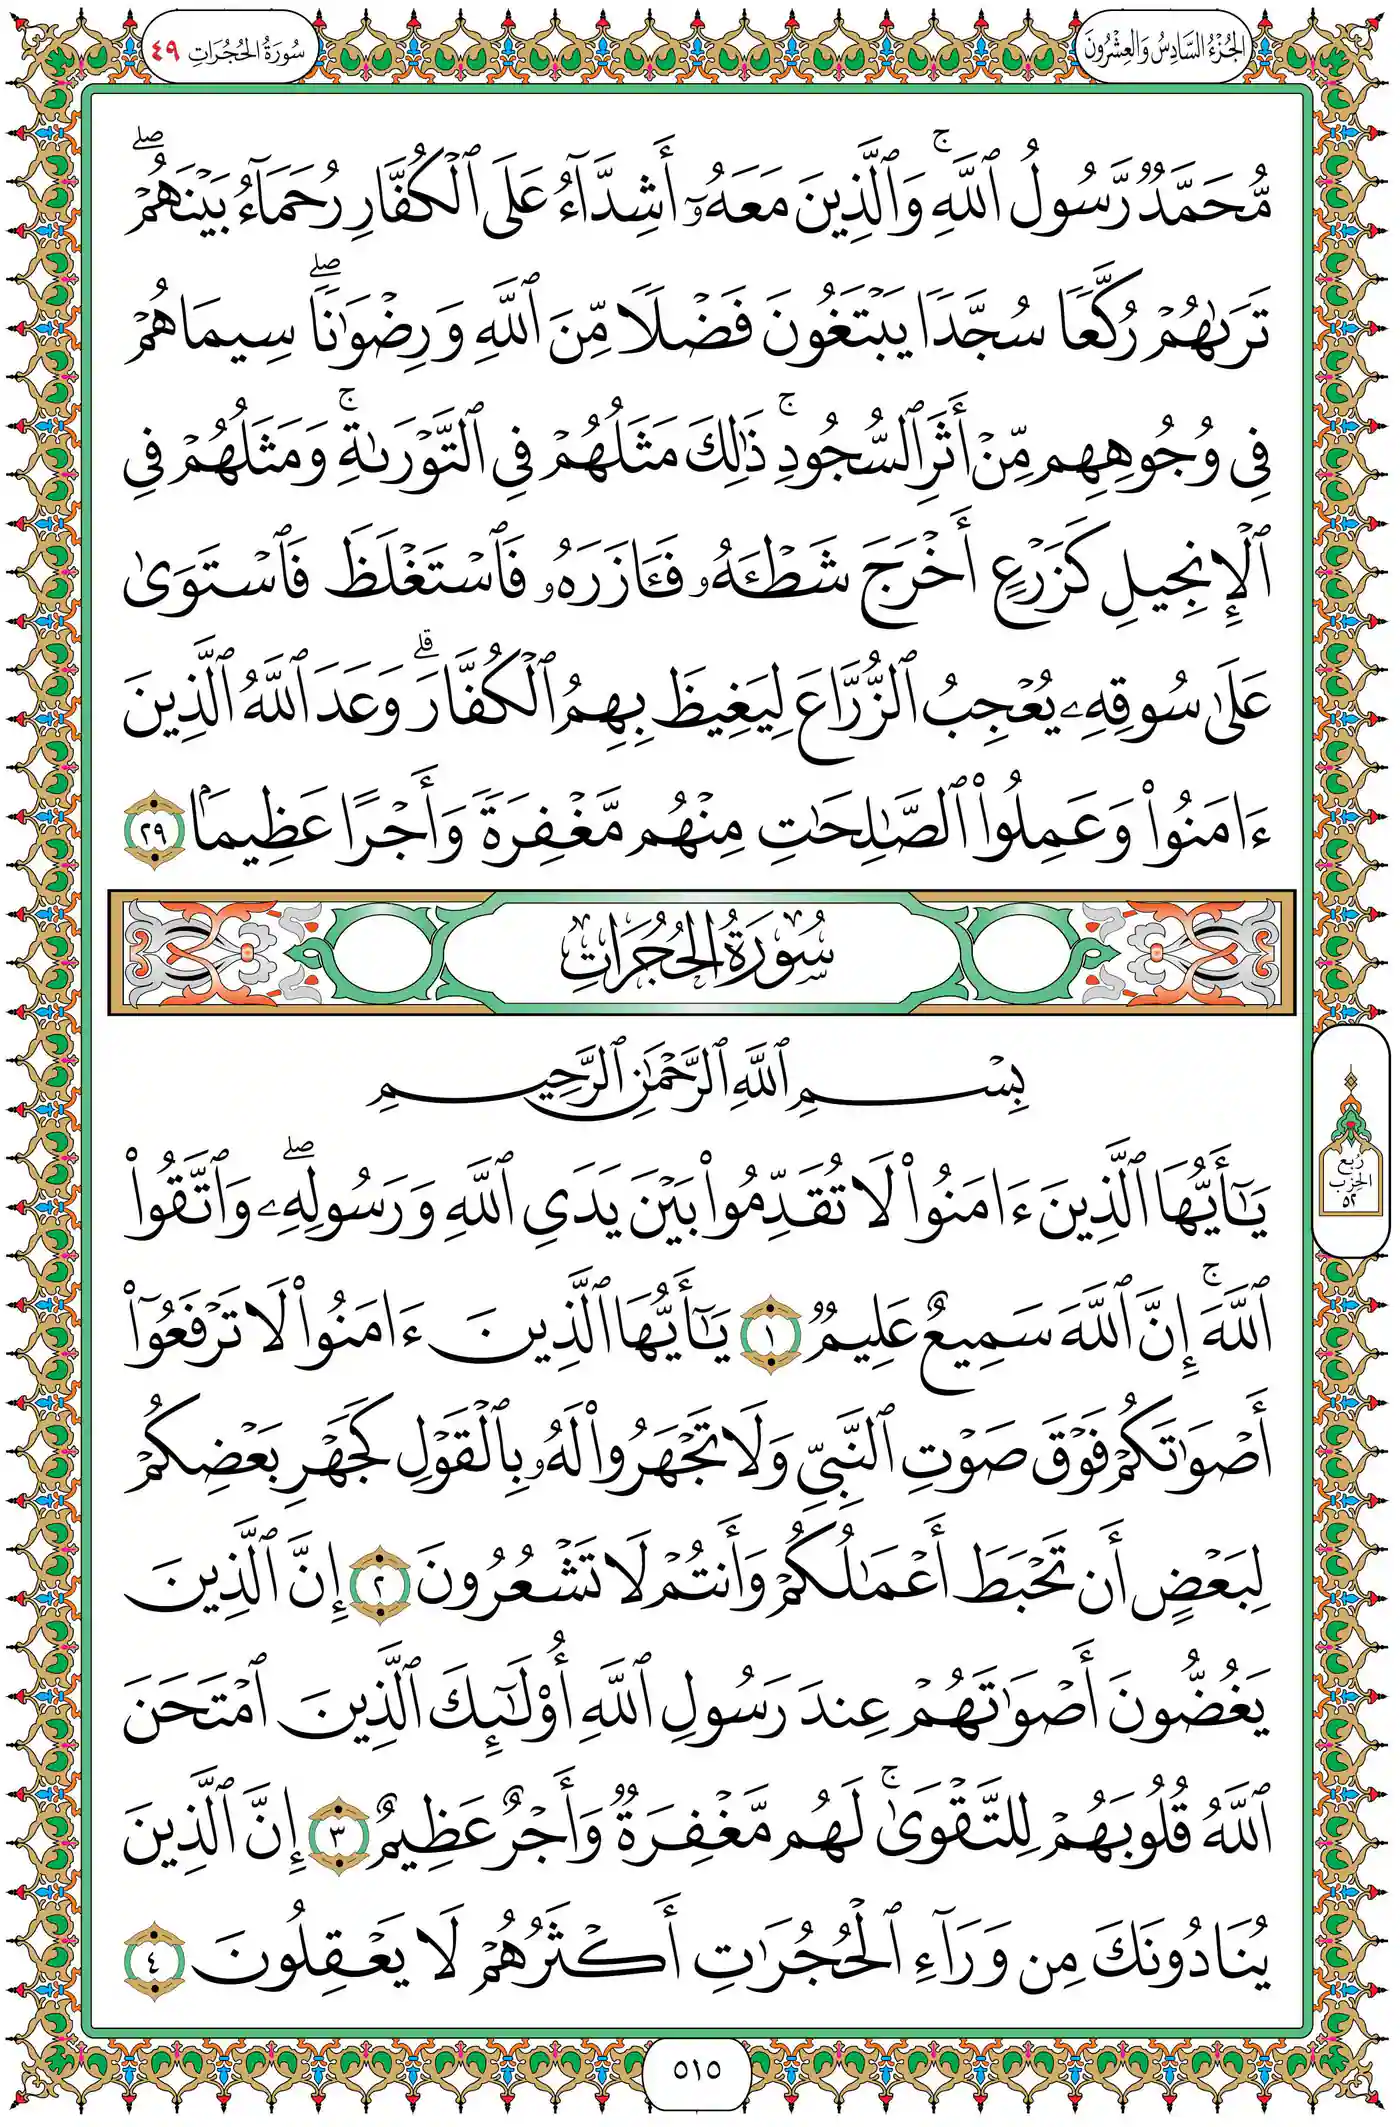 الجُزْءُ السَّادِسُ وَالعِشْرُونَ
سُورَةُ الحُجُرَاتِ ٤٩
مُّحَمَّدٌ رَّسُولُ ٱللَّهِۚ وَٱلَّذِينَ مَعَهُۥٓ أَشِدَّآءُ عَلَى ٱلْكُفَّارِ رُحَمَآءُ بَيْنَهُمْۖ
تَرَىٰهُمْ رُكَّعًا سُجَّدًا يَبْتَغُونَ فَضْلًا مِّنَ ٱللَّهِ وَرِضْوَٰنًاۖ سِيمَاهُمْ
فِى وُجُوهِهِم مِّنْ أَثَرِ ٱلسُّجُودِۚ ذَٰلِكَ مَثَلُهُمْ فِى ٱلتَّوْرَىٰةِۚ وَمَثَلُهُمْ فِى
ٱلْإِنجِيلِ كَزَرْعٍ أَخْرَجَ شَطْـَٔهُۥ فَـَٔازَرَهُۥ فَٱسْتَغْلَظَ فَٱسْتَوَىٰ
عَلَىٰ سُوقِهِۦ يُعْجِبُ ٱلزُّرَّاعَ لِيَغِيظَ بِهِمُ ٱلْكُفَّارَۗ وَعَدَ ٱللَّهُ ٱلَّذِينَ
ءَامَنُوا۟ وَعَمِلُوا۟ ٱلصَّٰلِحَٰتِ مِنْهُم مَّغْفِرَةً وَأَجْرًا عَظِيمَۢا ٢٩
سُورَةُ الحُجُرَاتِ
بِسْمِ ٱللَّهِ ٱلرَّحْمَٰنِ ٱلرَّحِيمِ
يَٰٓأَيُّهَا ٱلَّذِينَ ءَامَنُوا۟ لَا تُقَدِّمُوا۟ بَيْنَ يَدَىِ ٱللَّهِ وَرَسُولِهِۦۖ وَٱتَّقُوا۟
ٱللَّهَۚ إِنَّ ٱللَّهَ سَمِيعٌ عَلِيمٌ ١ يَٰٓأَيُّهَا ٱلَّذِينَ ءَامَنُوا۟ لَا تَرْفَعُوٓا۟
أَصْوَٰتَكُمْ فَوْقَ صَوْتِ ٱلنَّبِىِّ وَلَا تَجْهَرُوا۟ لَهُۥ بِٱلْقَوْلِ كَجَهْرِ بَعْضِكُمْ
لِبَعْضٍ أَن تَحْبَطَ أَعْمَٰلُكُمْ وَأَنتُمْ لَا تَشْعُرُونَ ٢ إِنَّ ٱلَّذِينَ
يَغُضُّونَ أَصْوَٰتَهُمْ عِندَ رَسُولِ ٱللَّهِ أُو۟لَٰٓئِكَ ٱلَّذِينَ ٱمْتَحَنَ
ٱللَّهُ قُلُوبَهُمْ لِلتَّقْوَىٰۚ لَهُم مَّغْفِرَةٌ وَأَجْرٌ عَظِيمٌ ٣ إِنَّ ٱلَّذِينَ
يُنَادُونَكَ مِن وَرَآءِ ٱلْحُجُرَٰتِ أَكْثَرُهُمْ لَا يَعْقِلُونَ ٤
رُبع
الحِزْب
٥٢
٥١٥